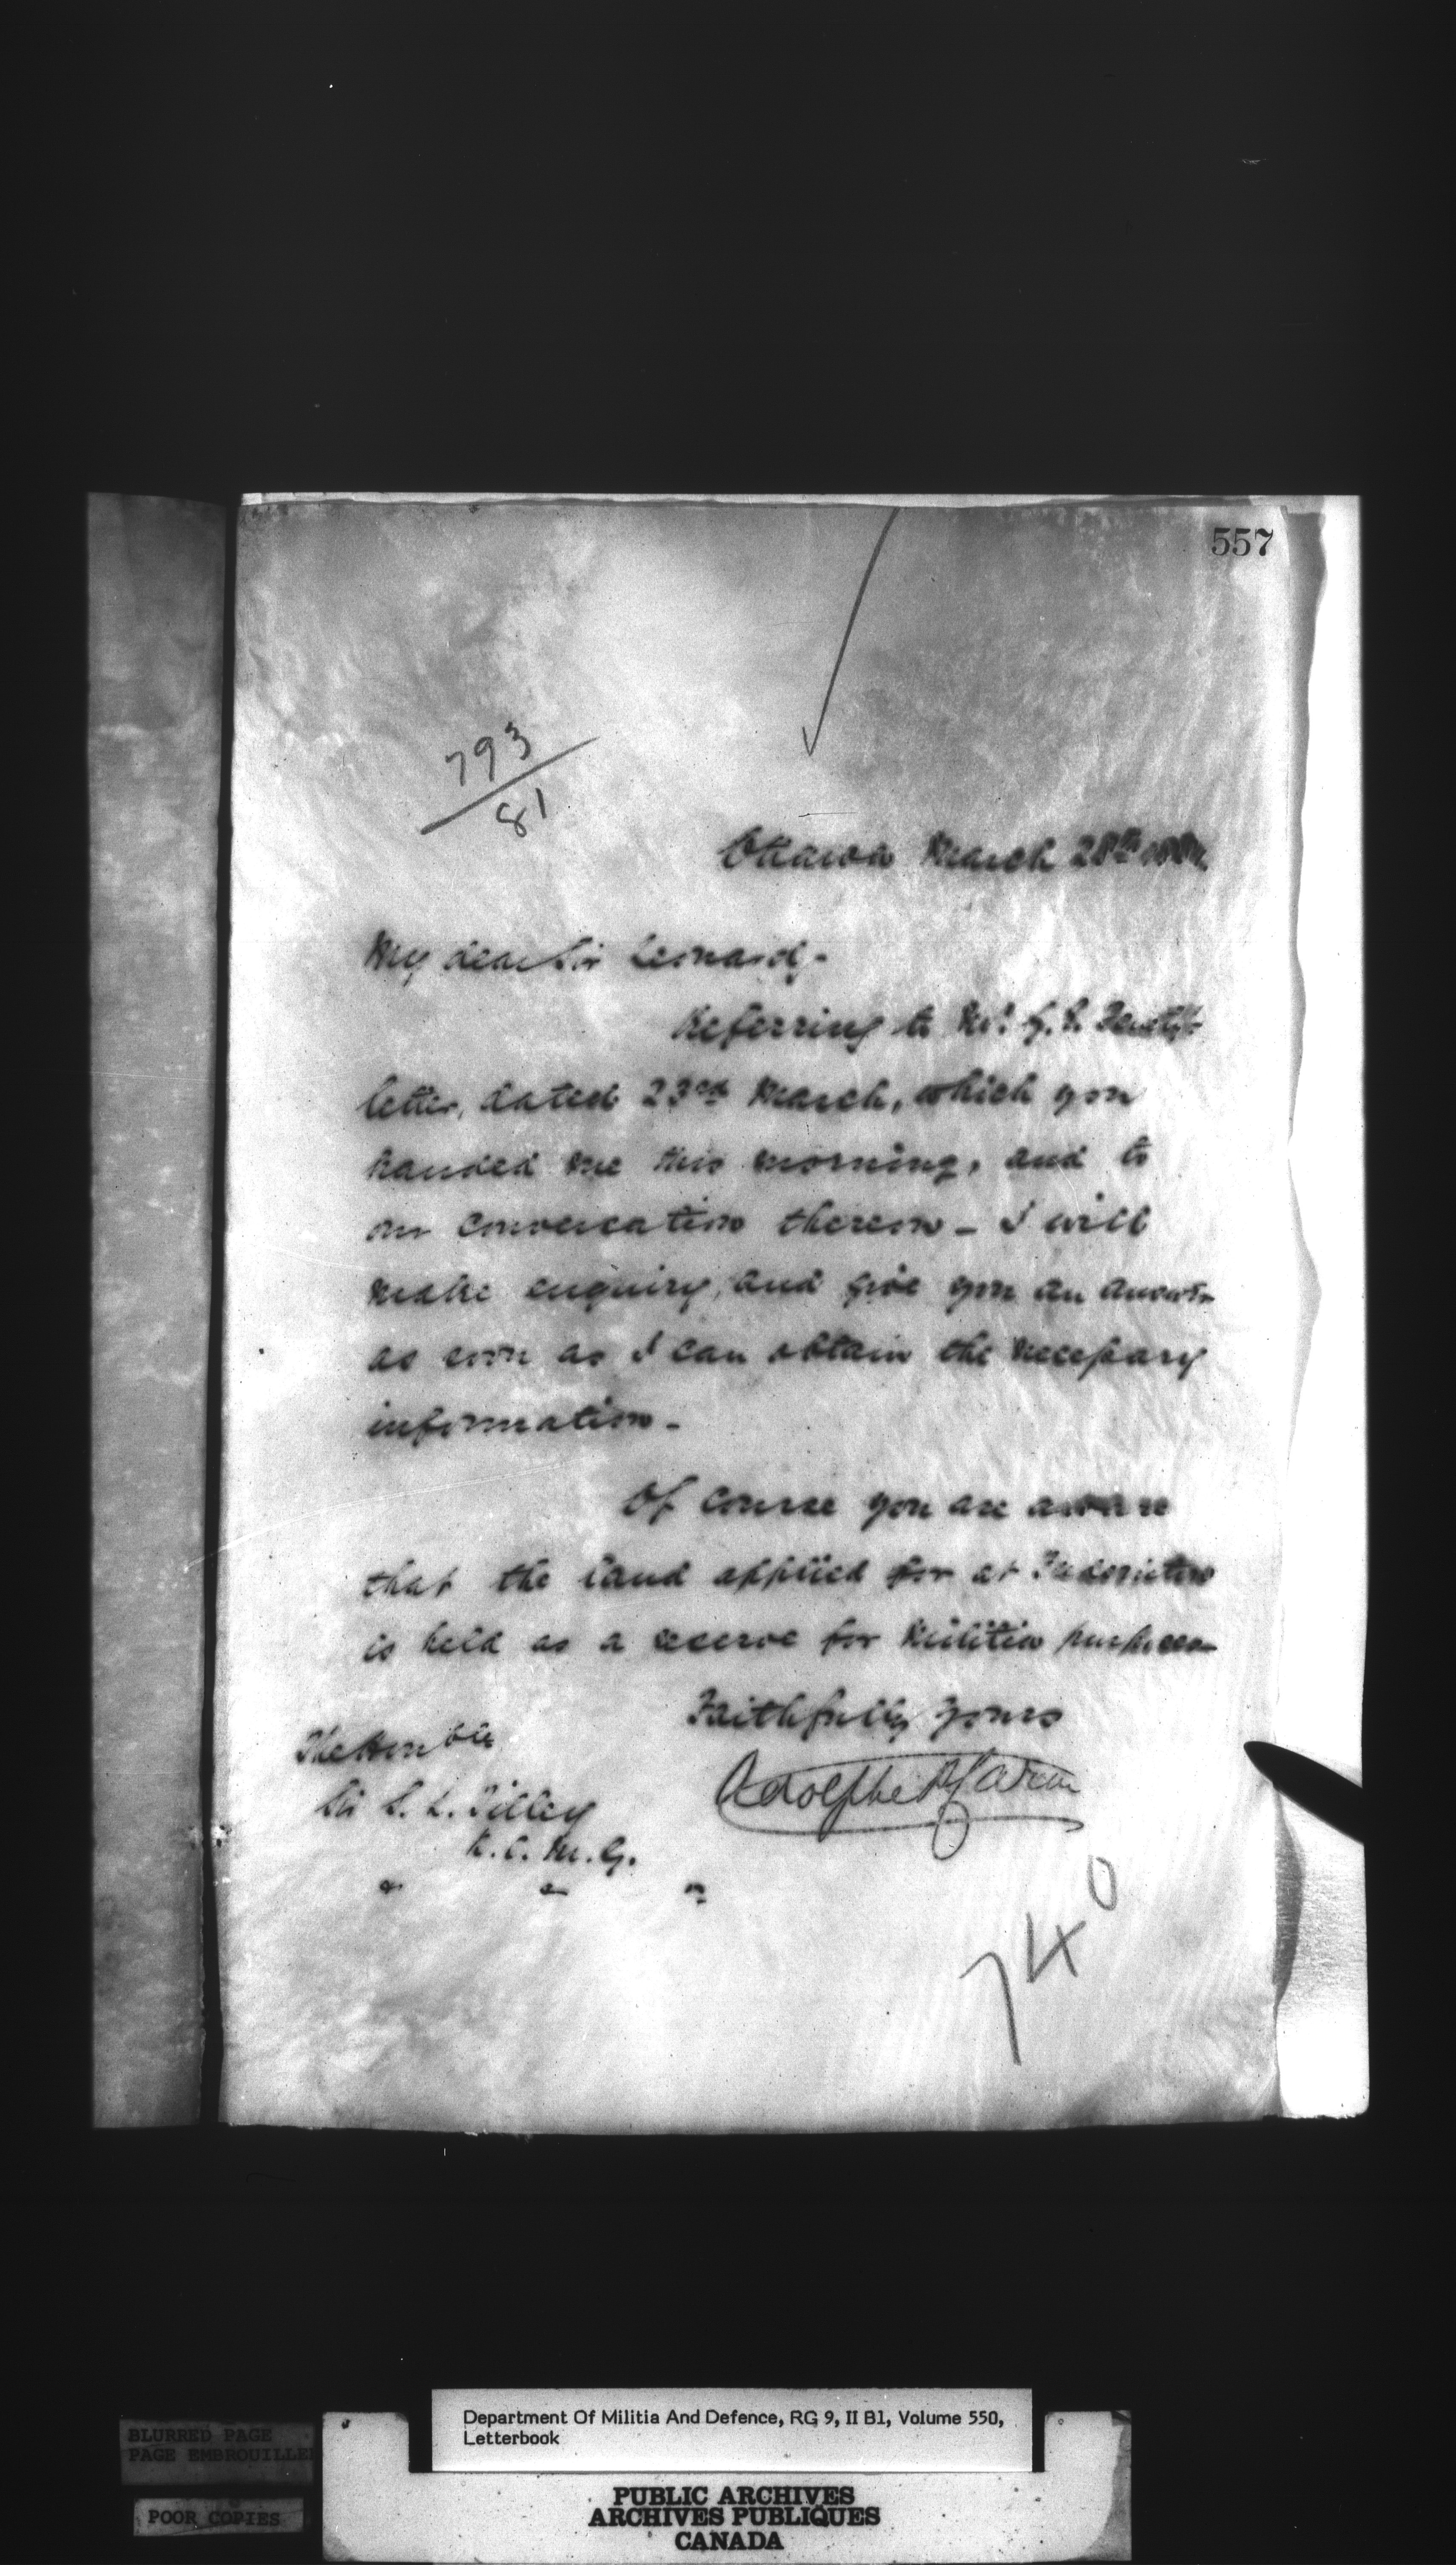 557
793
81
Ottawa March 28th
My dear Sir Leonard,-
Referring to Mr.
letter, dated 23rd March, which you
handed me this morning, and to
our conversation thereon - I will
make enquiry, and give you an answer
as soon as I can obtain the necessary
information -
Of course you are aware
that the land applied for at Fredericton
is held as a reserve for Militia purposes
Faithfully yours
Adolphe P. Caron
The Honble
Sir S. L. Tilley
K.C.M.G.
740
BLURRED PAGE
PAGE EMBROUILLEE
POOR COPIES
Department Of Militia And Defence, RG 9, II B1, Volume 550,
Letterbook
PUBLIC ARCHIVES
ARCHIVES PUBLIQUES
CANADA